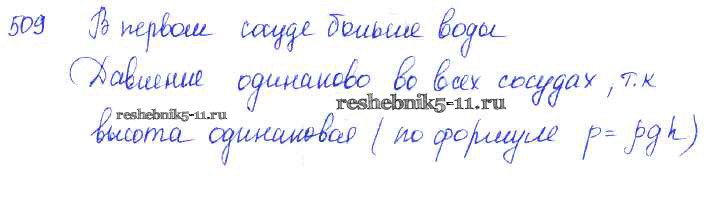 509 В первом сосуде больше воды
Давление одинаково во всех сосудах, т.к
reshebnik5-11.ru
reshebnik5-11.ru
высота одинаковая (по формуле p = ρgh)